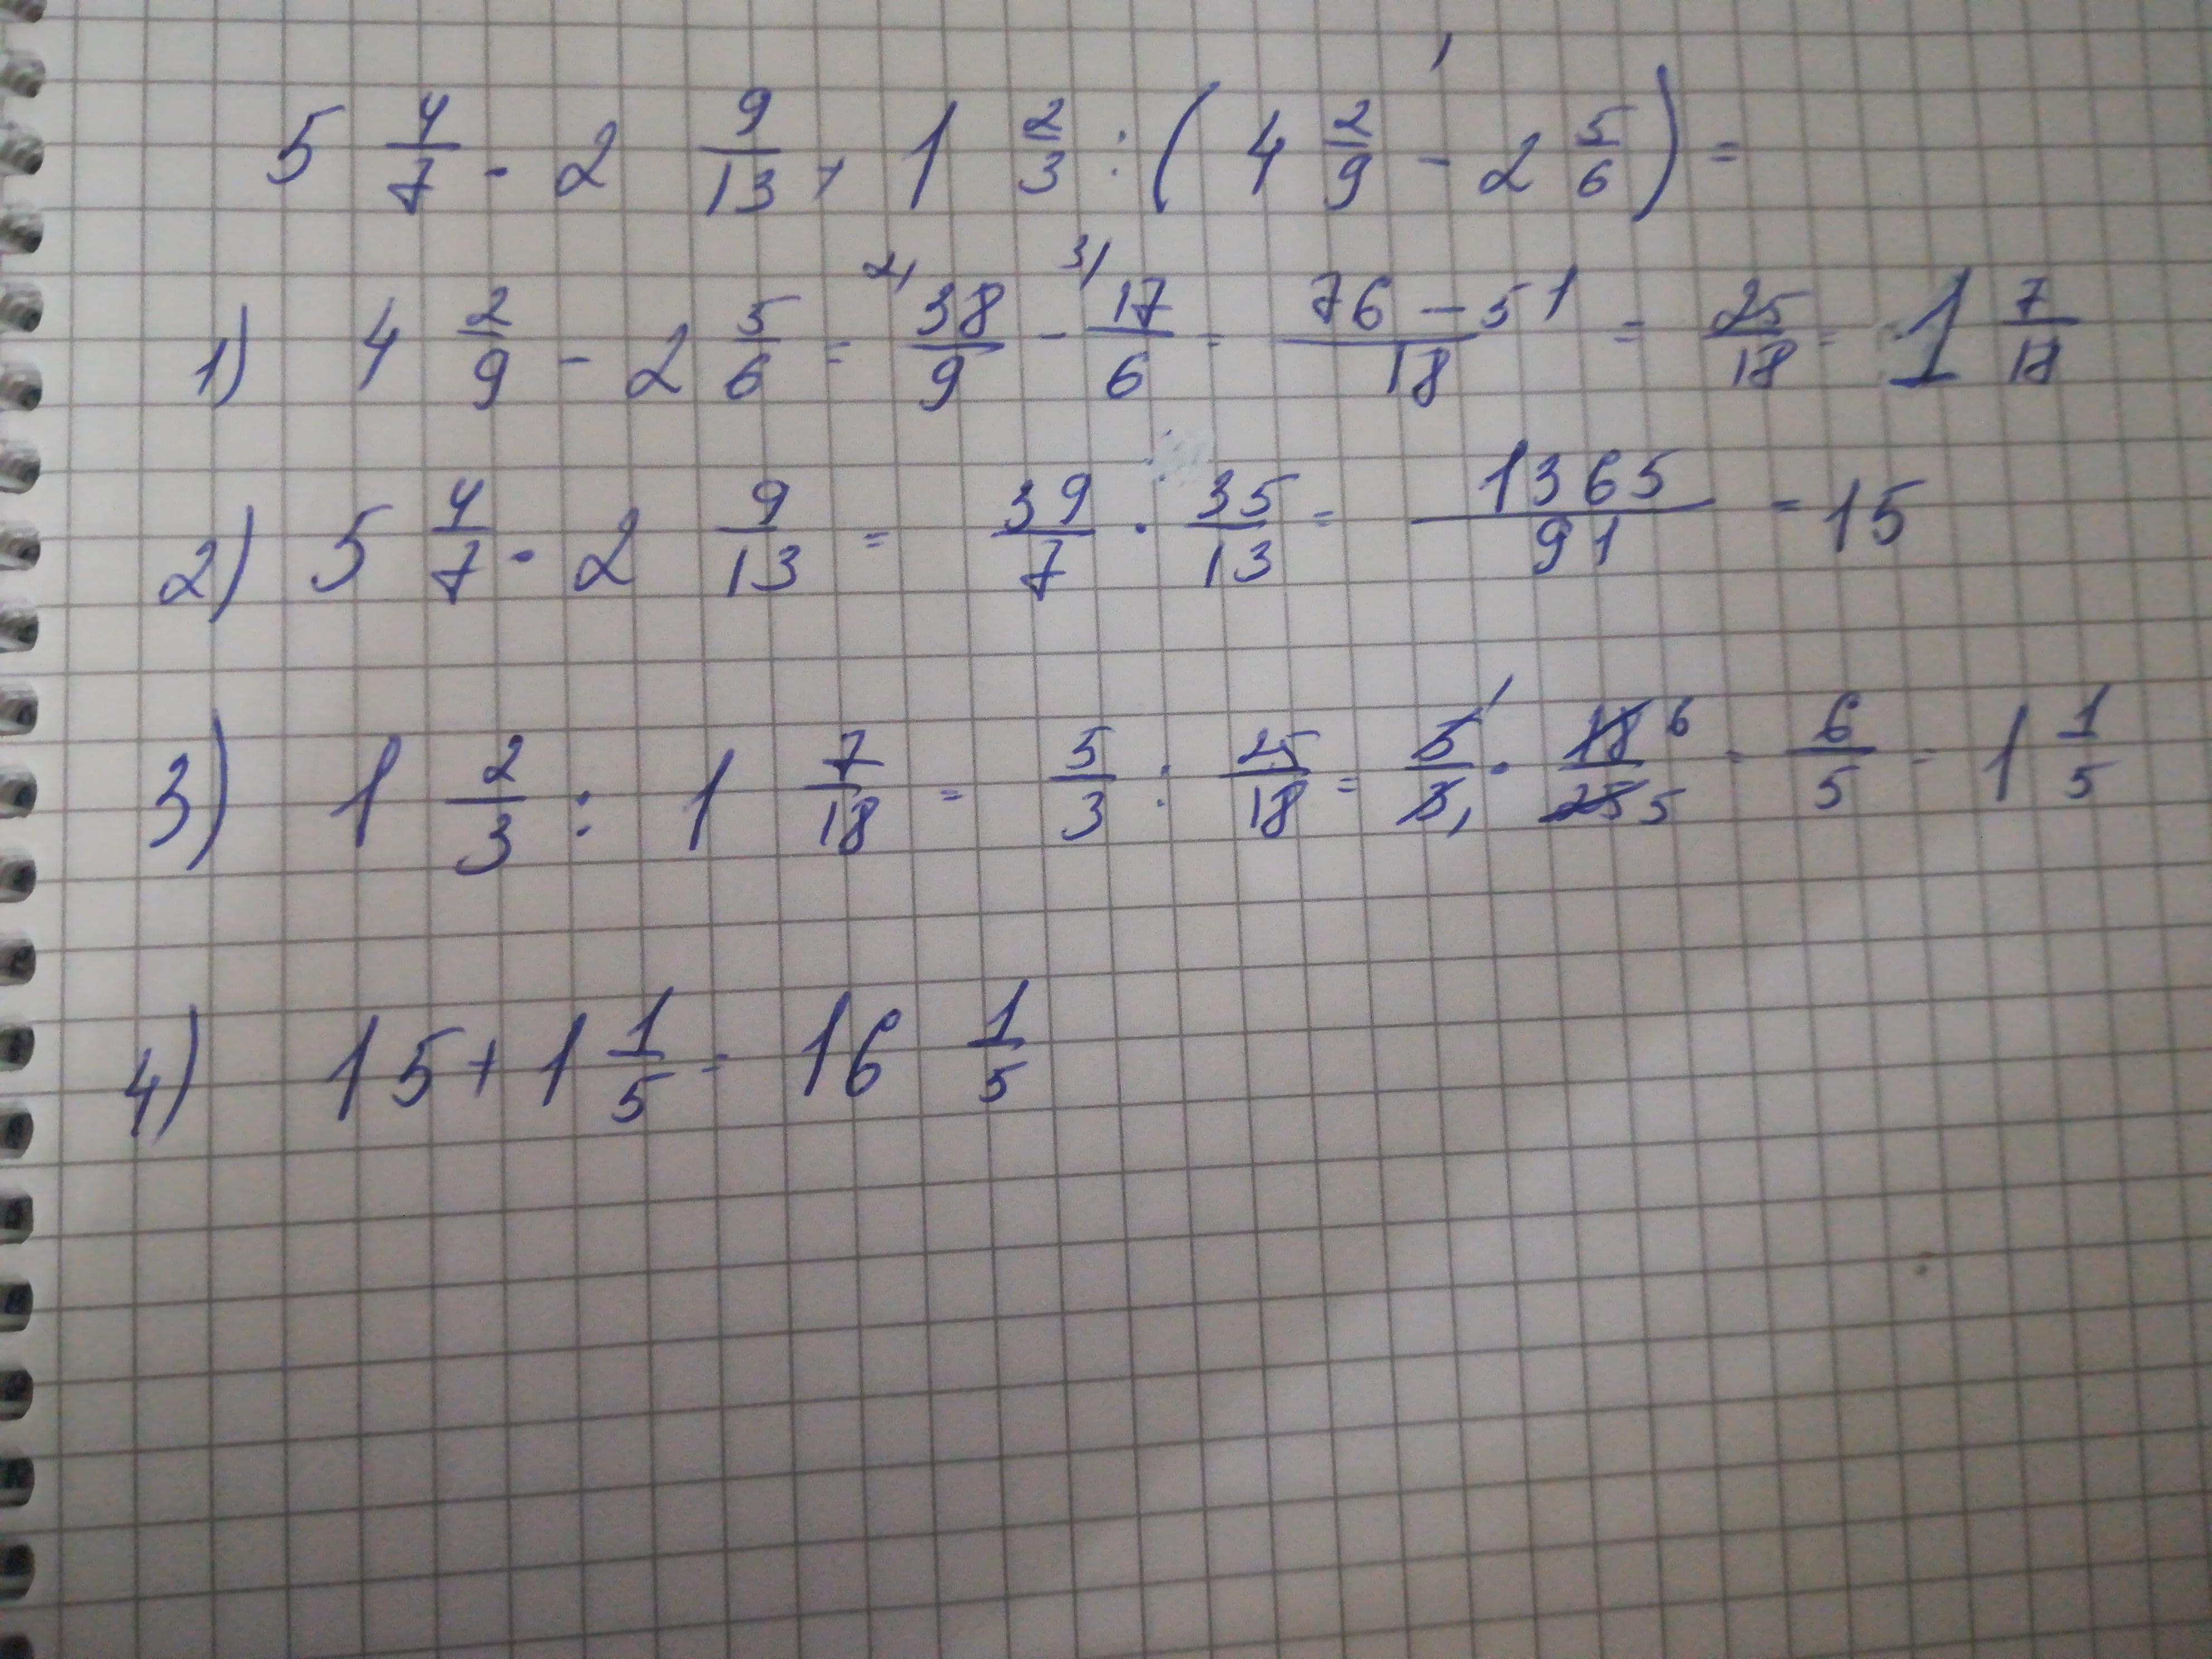 5 4/7 · 2 9/13 + 1 2/3 : (4 2/9 - 2 5/6) =
1) 4 2/9 - 2 5/6 = 38/9 - 17/6 = 76-51/18 = 25/18 = 1 7/18
2) 5 4/7 · 2 9/13 = 39/7 · 35/13 = 1365/91 = 15
3) 1 2/3 : 1 7/18 = 5/3 : 25/18 = 5/3 · 18/25 = 6/5 = 1 1/5
4) 15 + 1 1/5 = 16 1/5